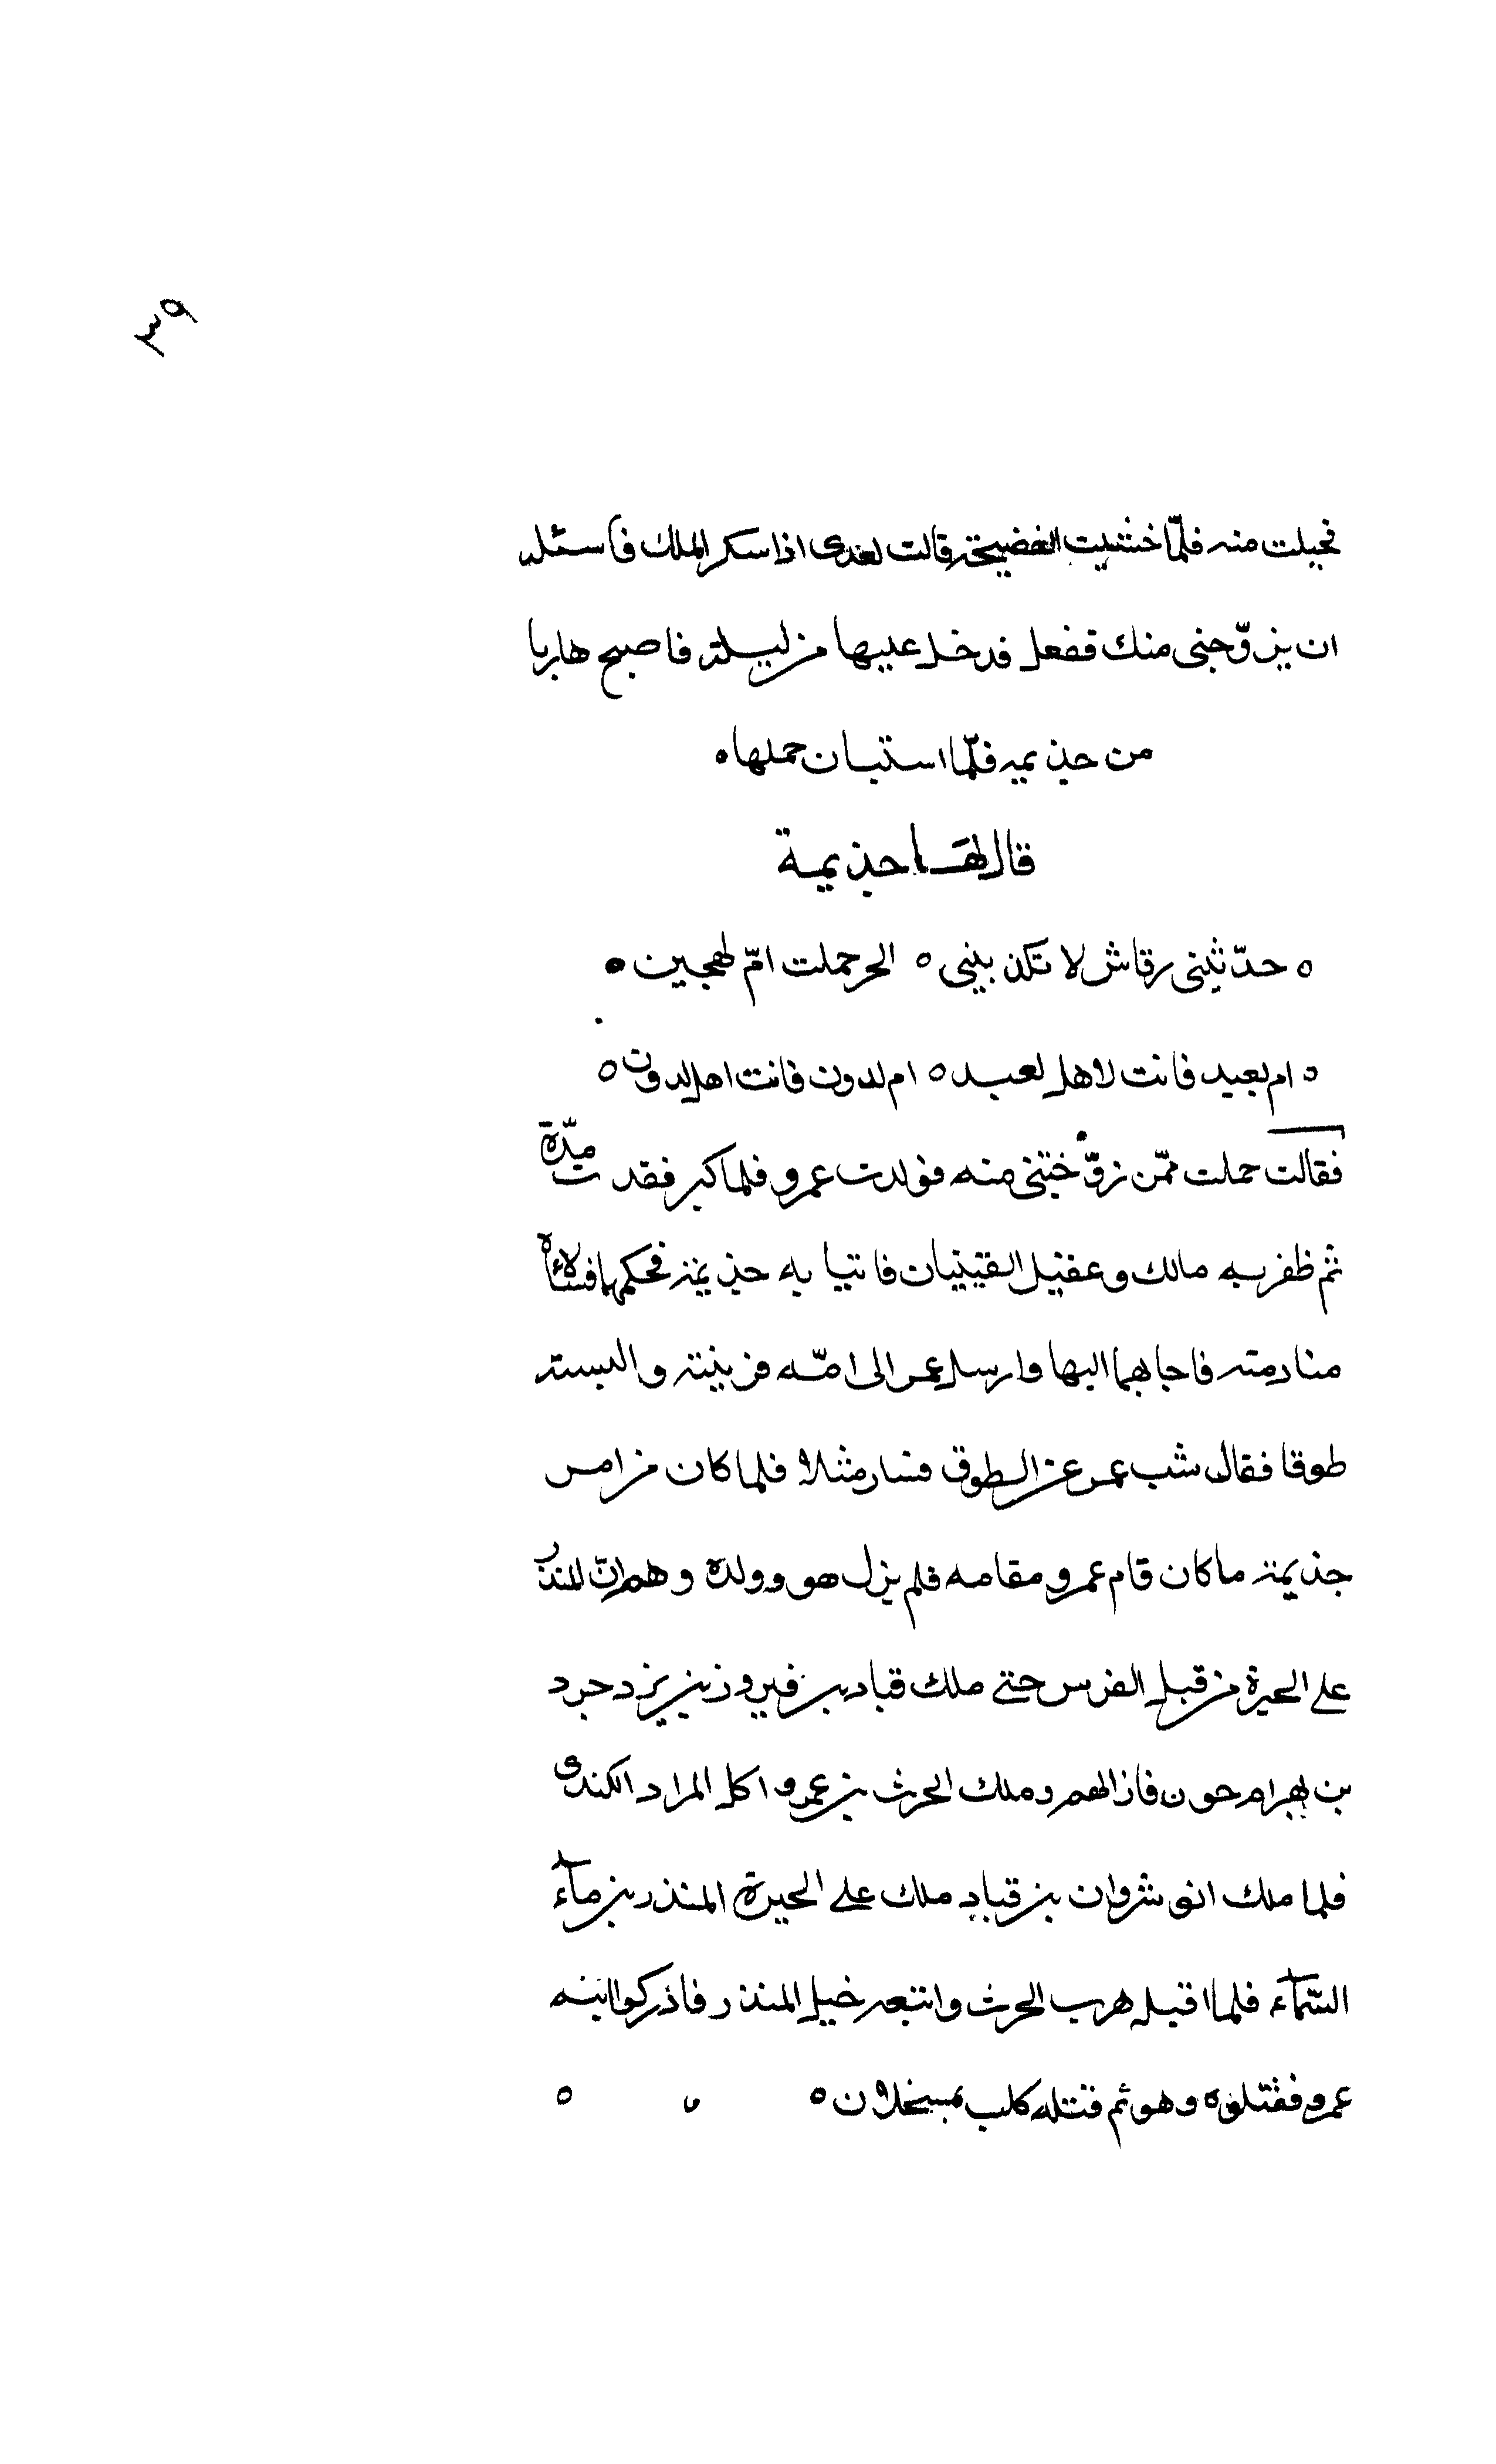 ٣٩
فحبلت منه فلمّا خشيت الفضيحة قالت لعدى اذا سكر الملك فاسئله
ان يزوّجنى منك ففعل فدخل عليها من ليلته فاصبح هاربا
من جذيمه فلمّا استبان حملها ه
قال لهَا جذيمة
ه حدّثينى رقاش لا تكذبينى ه الحر حملت امّ لهجين ه
ه ام لعبد فانت لاهل لعبد ه ام لدون فانت اهل لدون ه
فقالت حملت ممّن زوّجتنى منه فولدت عمرو فلما كبر فقدت مدّة
ثم ظفر به مالك وعقيل القينيان فاتيا به جذيمة فحكمهما فسئلاه
منادمته فاجابهما اليها وارسل عمر الى امّه فزينته والبسته
طوقا فقال شب عمر عن الطوق فسار مثلا فلما كان من امر
جذيمة ما كان قام عمرو مقامه فلم يزل هو وولده وهم انّ المنذر
على الحيرة من قبل الفرس حتى ملك قباد بن فيروز بن يزدجرد
بن بهرام جون فازالهم وملك الحرث بن عمرو اكل المرار الكندى
فلما ملك انوشروان بن قباد ملك على الحيرة المنذر بن مآء
السّمآء فلما اقبل هرب الحرث واتبعه خيل المنذر فادركوا ابنه
عمرو فقتلوه وهو ثم قتله كلب بمسحلان ه ه